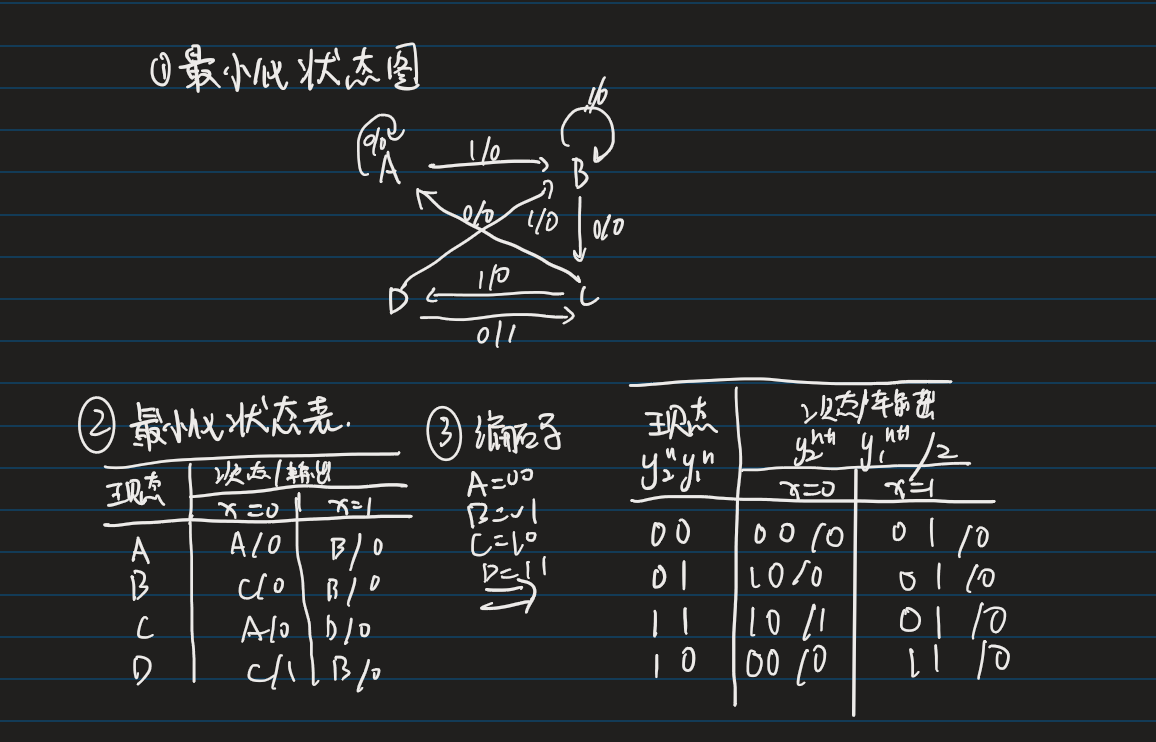 ①最小化状态图
0/0
1/0
A
1/0
B
0/0
1/0
0/0
1/0
D
C
0/1
②最小化状态表.
现态
次态/输出
x=0
x=1
A
A/0
B/0
B
C/0
B/0
C
A/0
D/0
D
C/1
B/0
③编码
A=00
B=01
C=10
D=11
现态
次态/输出
y₂ⁿy₁ⁿ
y₂ⁿ⁺¹ y₁ⁿ⁺¹/Z
x=0
x=1
00
00/0
01/0
01
10/0
01/0
11
10/1
01/0
10
00/0
11/0